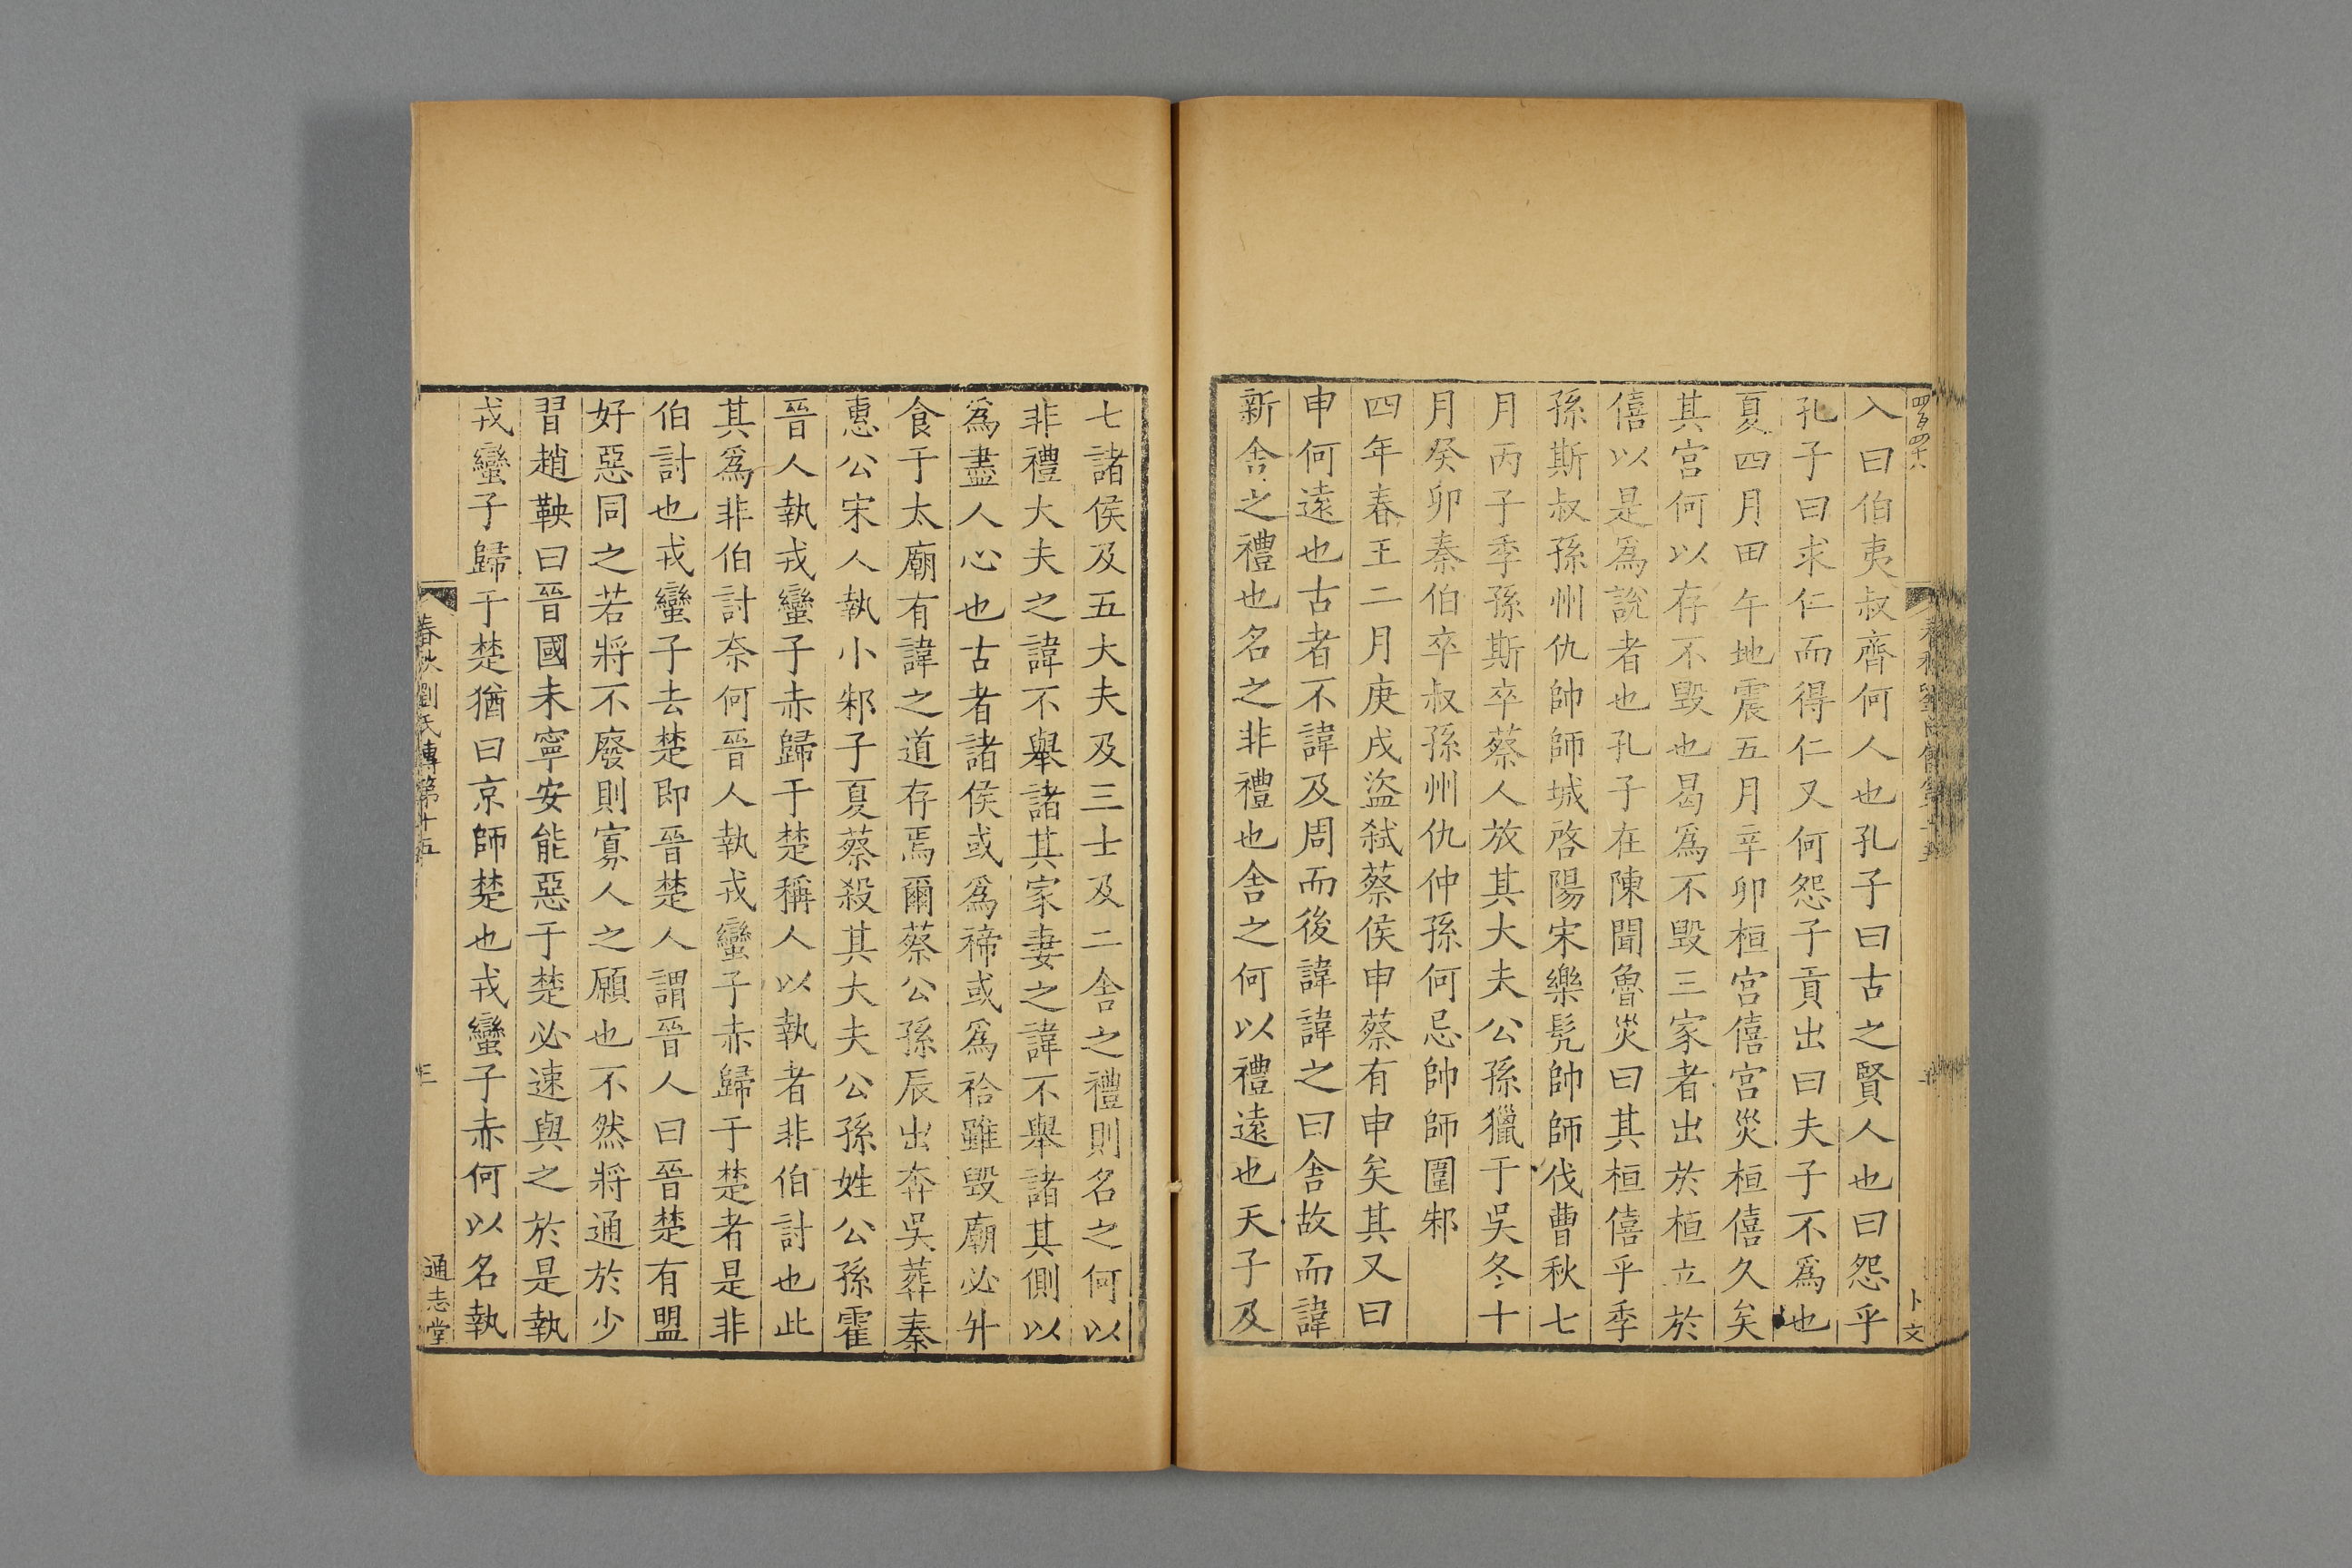 四百四十八
入曰伯夷叔齊何人也孔子曰古之賢人也曰怨乎
孔子曰求仁而得仁又何怨子貢出曰夫子不爲也
夏四月田午地震五月辛卯桓宫僖宫災桓僖久矣
其宫何以存不毁也曷爲不毁三家者出於桓立於
僖以是爲說者也孔子在陳聞魯災曰其桓僖乎季
孫斯叔孫州仇帥師城啓陽宋樂髠帥師伐曹秋七
月丙子季孫斯卒蔡人放其大夫公孫獵于吳冬十
月癸卯秦伯卒叔孫州仇仲孫何忌帥師圍邾
四年春王二月庚戌盜弑蔡侯申蔡有申矣其又曰
申何遠也古者不諱及周而後諱諱之曰舍故而諱
新舍之禮也名之非禮也舍之何以禮遠也天子及
卜文
七諸侯及五大夫及三士及二舍之禮則名之何以
非禮大夫之諱不舉諸其家妻之諱不舉諸其側以
爲盡人心也古者諸侯或爲禘或爲祫雖毁廟必升
食于太廟有諱之道存焉爾蔡公孫辰出奔吳葬秦
惠公宋人執小邾子夏蔡殺其大夫公孫姓公孫霍
晉人執戎蠻子赤歸于楚稱人以執者非伯討也此
其爲非伯討奈何晉人執戎蠻子赤歸于楚者是非
伯討也戎蠻子去楚即晉楚人謂晉人曰晉楚有盟
好惡同之若將不廢則寡人之願也不然將通於少
習趙鞅曰晉國未寧安能惡于楚必速與之於是執
戎蠻子歸于楚猶曰京師楚也戎蠻子赤何以名執
春秋劉氏傳第十五
通志堂